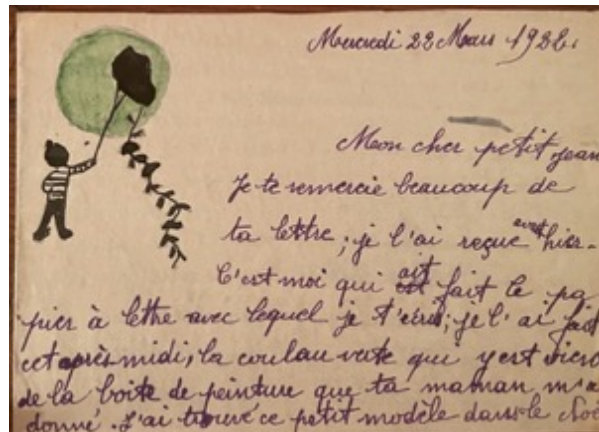 Mercredi 22 Mars 1922.
Mon cher petit jean
Je te remercie beaucoup de
ta lettre; je l'ai reçue avant hier.
C'est moi qui ait fait le pa
pier à lettre avec lequel je t'écris; je l'ai fait
cet après midi, la couleur verte qui y est vient
de la boite de peinture que ta maman m'a
donné. J'ai trouvé ce petit modèle dans le Noë